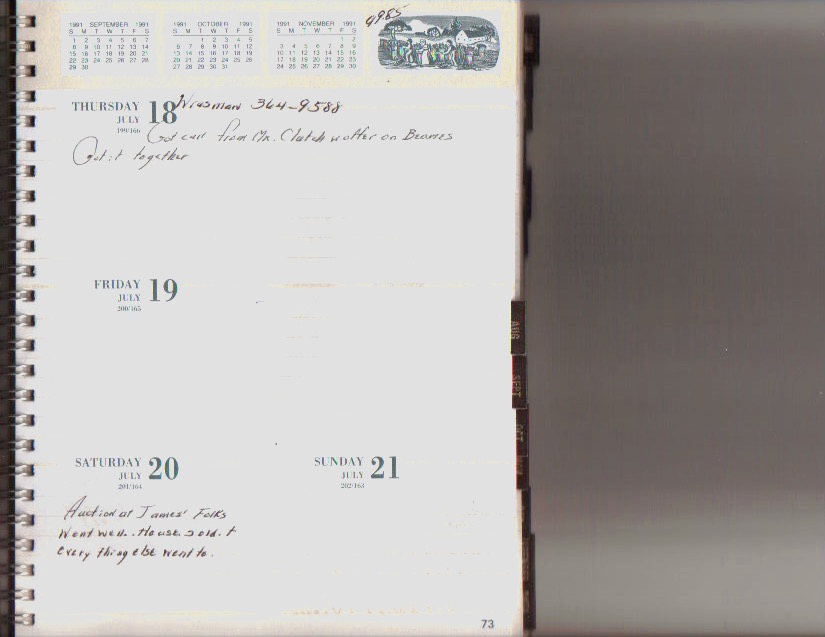 1991 SEPTEMBER 1991
S M T W T F S
1 2 3 4 5 6 7
8 9 10 11 12 13 14
15 16 17 18 19 20 21
22 23 24 25 26 27 28
29 30
1991 OCTOBER 1991
S M T W T F S
1 2 3 4 5
6 7 8 9 10 11 12
13 14 15 16 17 18 19
20 21 22 23 24 25 26
27 28 29 30 31
1991 NOVEMBER 1991
S M T W T F S
1 2
3 4 5 6 7 8 9
10 11 12 13 14 15 16
17 18 19 20 21 22 23
24 25 26 27 28 29 30
9985
THURSDAY 18
JULY
199/166
364-9588
Got call from Mr. Clutch w offer on
Got it together
FRIDAY 19
JULY
200/165
AUG
SEPT
OCT
SATURDAY 20
JULY
201/164
SUNDAY 21
JULY
202/163
Auction at James' Folks
Went well. House sold. +
every thing else went to.
73